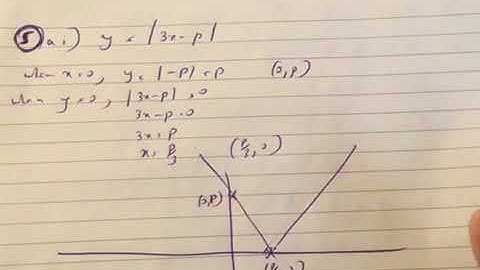 5 a i) y = |3x-p|
when x=0, y = |-p| = p (0, p)
when y=0, |3x-p| = 0
3x-p=0
3x = p
x = p/3
(p/3, 0)
(0, p)